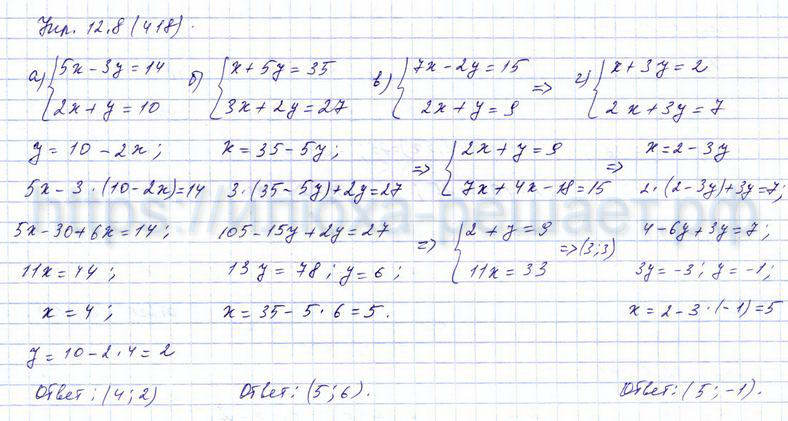 Упр. 12.8 (418).
а) { 5x - 3y = 14
2x + y = 10
y = 10 - 2x;
5x - 3 · (10 - 2x) = 14
5x - 30 + 6x = 14;
11x = 44;
x = 4;
y = 10 - 2 · 4 = 2
Ответ: (4; 2)
б) { x + 5y = 35
3x + 2y = 27
x = 35 - 5y;
3 · (35 - 5y) + 2y = 27
105 - 15y + 2y = 27
13y = 78; y = 6;
x = 35 - 5 · 6 = 5.
Ответ: (5; 6).
в) { 7x - 2y = 15
2x + y = 9 =>
=> { 2x + y = 9
7x + 4x - 18 = 15 =>
=> { 2 + y = 9
11x = 33 => (3; 3)
г) { x + 3y = 2
2x + 3y = 7
x = 2 - 3y
2 · (2 - 3y) + 3y = 7;
4 - 6y + 3y = 7;
3y = -3; y = -1;
x = 2 - 3 · (-1) = 5
Ответ: (5; -1).